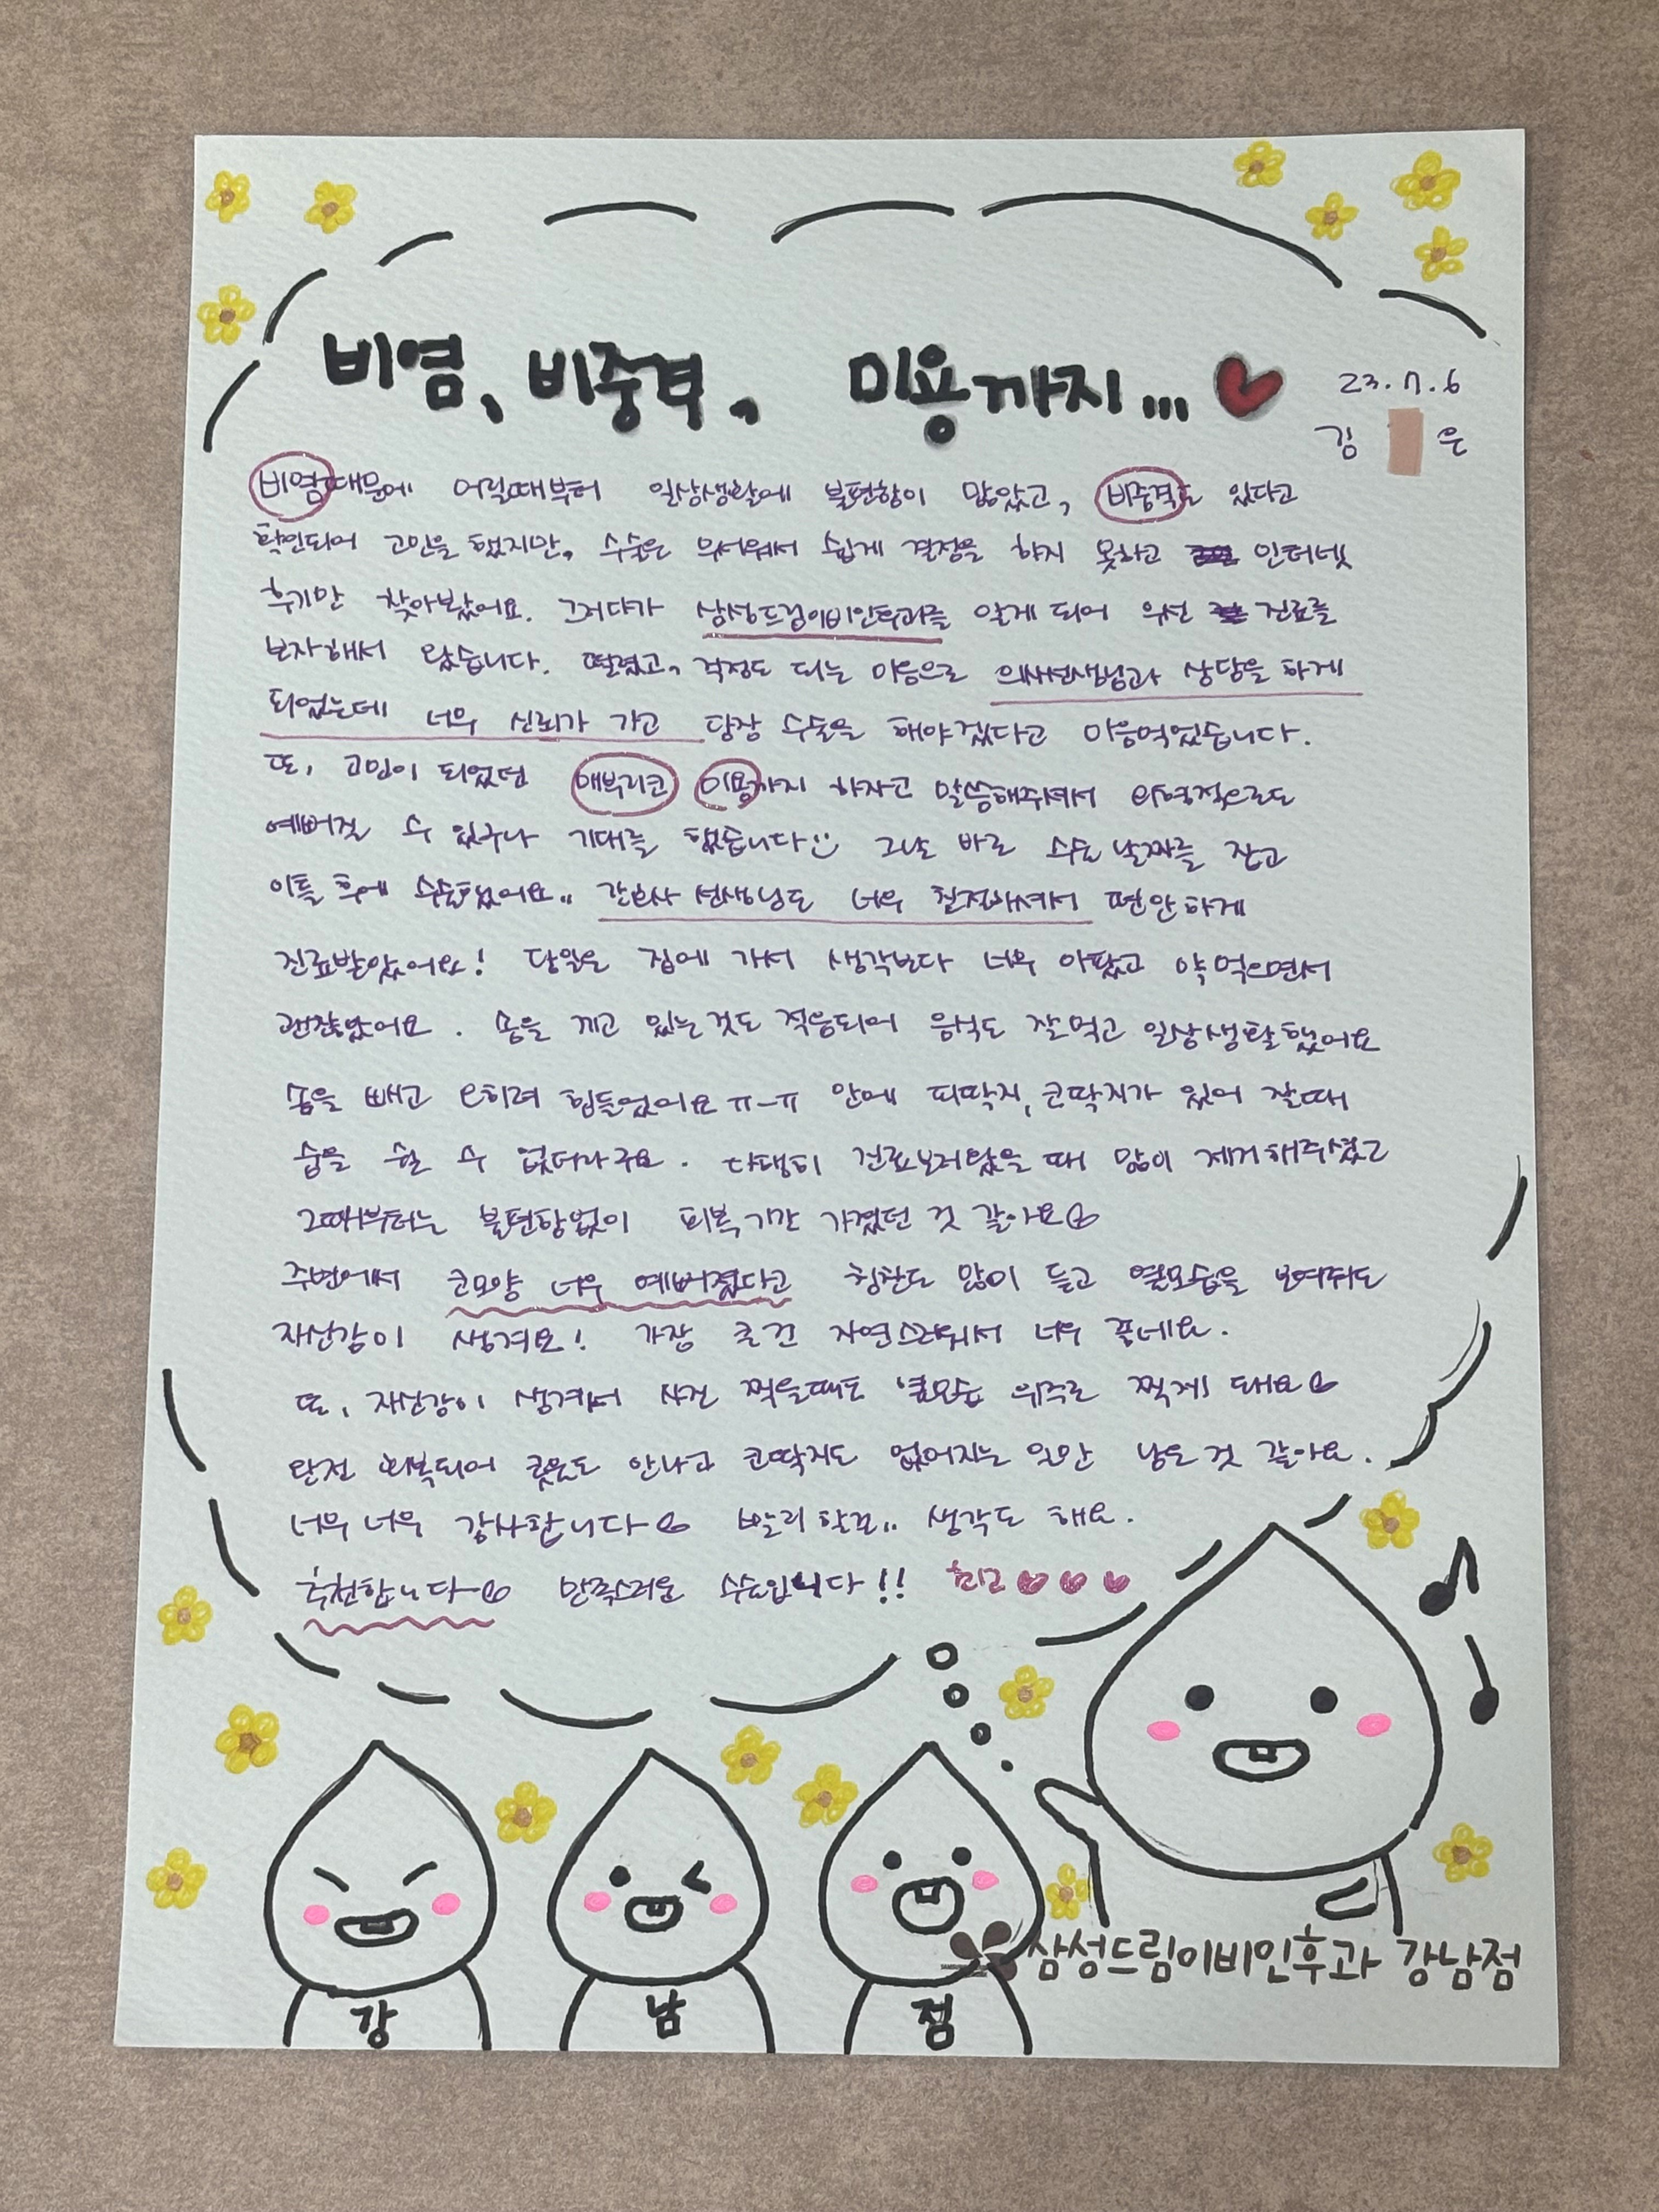 비염, 비중격, 미용까지...
23.7.6
김 은
비염때문에 어릴때부터 일상생활에 불편함이 많았고, 비중격도 있다고
확인되어 고민을 했지만, 수술은 무서워서 쉽게 결정을 하지 못하고 인터넷
후기만 찾아봤어요. 그러다가 삼성드림이비인후과를 알게 되어 우선 진료를
보자해서 왔습니다. 떨렸고, 걱정도 되는 마음으로 의사선생님과 상담을 하게
되었는데 너무 신뢰가 가고 당장 수술을 해야겠다고 마음먹었습니다.
또, 고민이 되었던 매부리코 미용까지 하자고 말씀해주셔서 외형적으로도
예뻐질 수 있구나 기대를 했습니다 그날 바로 수술 날짜를 잡고
이틀 후에 수술했어요.. 간호사 선생님도 너무 친절하셔서 편안하게
진료받았어요! 당일은 집에 가서 생각보다 너무 아팠고 약 먹으면서
괜찮았어요. 솜을 끼고 있는것도 적응되어 음식도 잘먹고 일상생활했어요
솜을 빼고 오히려 힘들었어요ㅠ-ㅠ 안에 피딱지, 코딱지가 있어 잘때
숨을 쉴 수 없더라구요. 다행히 진료보러왔을 때 많이 제거해주셨고
그때부터는 불편함없이 회복기간 가졌던 것 같아요
주변에서 코모양 너무 예뻐졌다고 칭찬도 많이 듣고 옆모습을 보여줘도
자신감이 생겨요! 가장 큰건 자연스러워서 너무 좋네요.
또, 자신감이 생겨서 사진 찍을때도 옆모습 위주로 찍게 돼요
완전 회복되어 콧물도 안나고 코딱지도 없어지는 일만 남은 것 같아요.
너무너무 감사합니다 빨리할걸.. 생각도 해요.
추천합니다 만족스러운 수술입니다!! 최고
강 남 점
삼성드림이비인후과 강남점